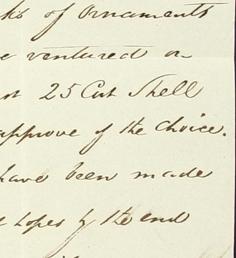 ks of Ornaments
e ventured on
25 Cut Shell
approve of the choice.
have been made
hopes by the end